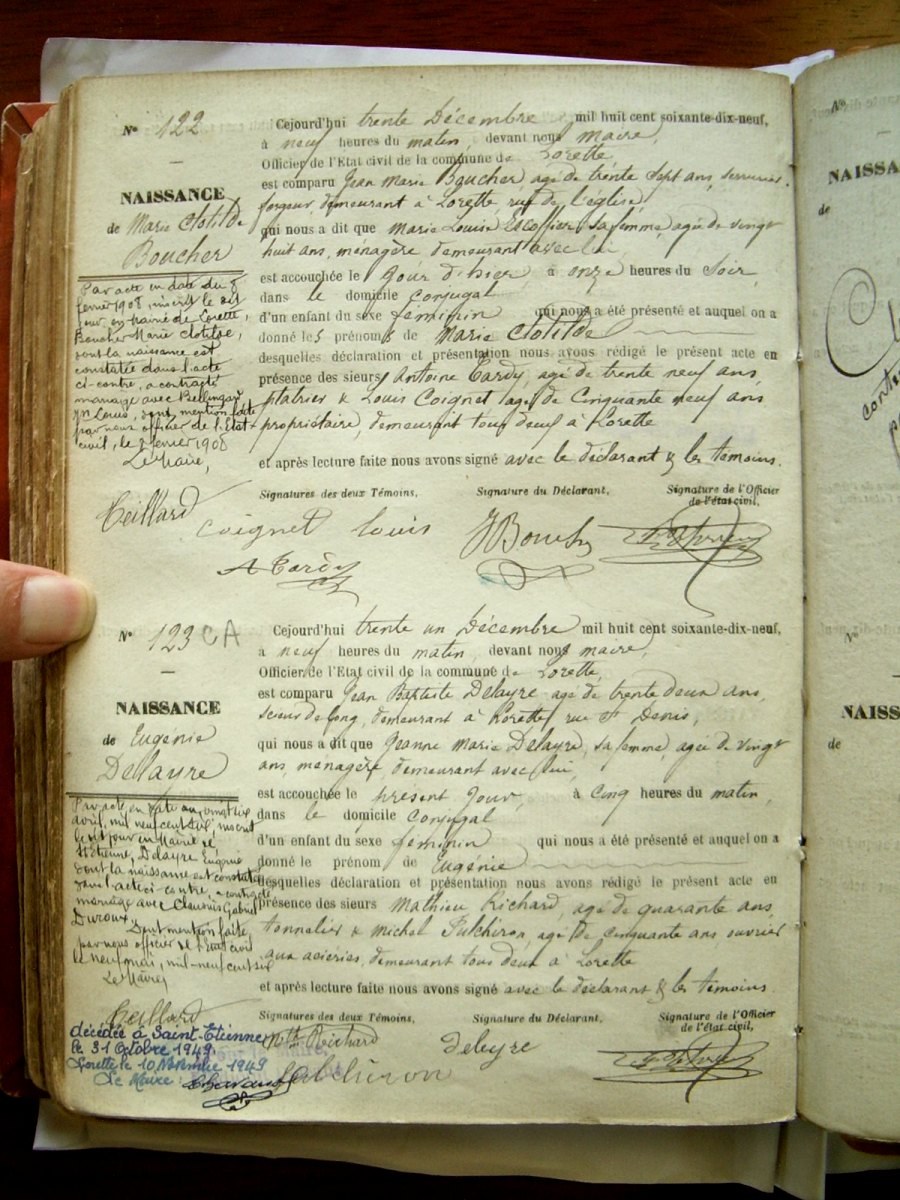 N° 122
NAISSANCE
de Marie Clotilde
Boucher
Par acte en date du 8
fevrier 1908, inscrit le dit
jour en Mairie de Lorette,
Boucher Marie Clotilde,
dont la naissance est
constatée dans l'acte
ci-contre, a contracté
mariage avec
Louis, dont mention faite
par nous officier de l'Etat
civil, le fevrier 1908
Le Maire,
Teillard
Cejourd'hui trente Décembre mil huit cent soixante-dix-neuf,
à neuf heures du matin, devant nous maire,
Officier de l'Etat civil de la commune de Lorette,
est comparu Jean Marie Boucher, agé de trente sept ans, serrurier
forgeur, demeurant à Lorette, rue de l'église,
qui nous a dit que Marie Louise Escoffier, sa femme, agée de vingt
huit ans, ménagère, demeurant avec lui
est accouchée le jour d'hier à onze heures du soir,
dans le domicile conjugal
d'un enfant du sexe féminin qui nous a été présenté et auquel on a
donné les prénoms de Marie Clotilde
desquelles déclaration et présentation nous avons rédigé le présent acte en
présence des sieurs Antoine Tardy, agé de trente neuf ans
platrier & Louis Coignet agé de Cinquante neuf ans
propriétaire, demeurant tous deux à Lorette
et après lecture faite nous avons signé avec le déclarant & les témoins.
Signatures des deux Témoins, Signature du Déclarant, Signature de l'Officier
de l'état civil,
Coignet Louis
A Tardy
JBoucher
N° 123 CA
NAISSANCE
de Eugénie
Delayre
Par acte en date du vingt six
avril, mil neuf cent six inscrit
le dit jour en Mairie de
St Etienne, Delayre Eugénie
dont la naissance est constatée
dans l'acte ci-contre, a contracté
mariage avec Claudius Gabriel
Duroux.
Dont mention faite,
par nous officier de l'Etat civil
le neuf mai, mil-neuf cent six
Le Maire,
Teillard
décédée à Saint-Etienne
le 31 Octobre 1949
Lorette le 10 Novembre 1949
Le Maire
Cejourd'hui trente un Décembre mil huit cent soixante-dix-neuf,
à neuf heures du matin, devant nous maire,
Officier de l'Etat civil de la commune de Lorette,
est comparu Jean Baptiste Delayre agé de trente deux ans,
scieur de long, demeurant à Lorette, rue St Denis,
qui nous a dit que Jeanne Marie Delayre, sa femme, agée de vingt
ans, ménagère, demeurant avec lui,
est accouchée le présent jour à cinq heures du matin,
dans le domicile conjugal
d'un enfant du sexe féminin qui nous a été présenté et auquel on a
donné le prénom de Eugénie
desquelles déclaration et présentation nous avons rédigé le présent acte en
présence des sieurs Mathieu Richard, agé de quarante ans,
tonnelier & michel Pulchiron, agé de cinquante ans ouvrier
aux aciéries, demeurant tous deux à Lorette
et après lecture faite nous avons signé avec le déclarant & les témoins.
Signatures des deux Témoins, Signature du Déclarant, Signature de l'Officier
de l'état civil,
Mth Richard
Pulchiron
deleyre
N°
NAISSA
de
N°
NAISS
de